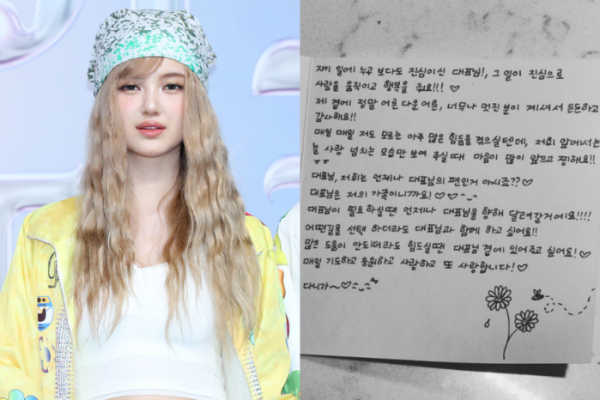 자기 일에 누구 보다도 진심이신 대표님!, 그 일이 진심으로
사람을 움직이고 행복을 줘요!!! ♡
제 곁에 정말 어른 다운 어른, 너무나 멋진 분이 계셔서 든든하고
감사해요!!
매일 매일 저도 모르는 아주 많은 힘듦을 겪으실텐데, 저희 앞에서는
늘 사랑 넘치는 모습만 보여 주실때 마음이 많이 아프고 찡해요!!
대표님, 저희는 언제나 대표님의 편인거 아시죠??♡
대표님은 저의 가족이니까요! ♡♡
대표님이 필요하실땐 언제나 대표님을 향해 달려갈거에요!!!!
어떤길을 선택 하더라도 대표님과 함께 하고 싶어요!!
많은 도움이 안되더라도 힘드실땐 대표님 곁에 있어주고 싶어요! ♡
매일 기도하고 응원하고 사랑하고 또 사랑합니다! ♡
다니가~♡